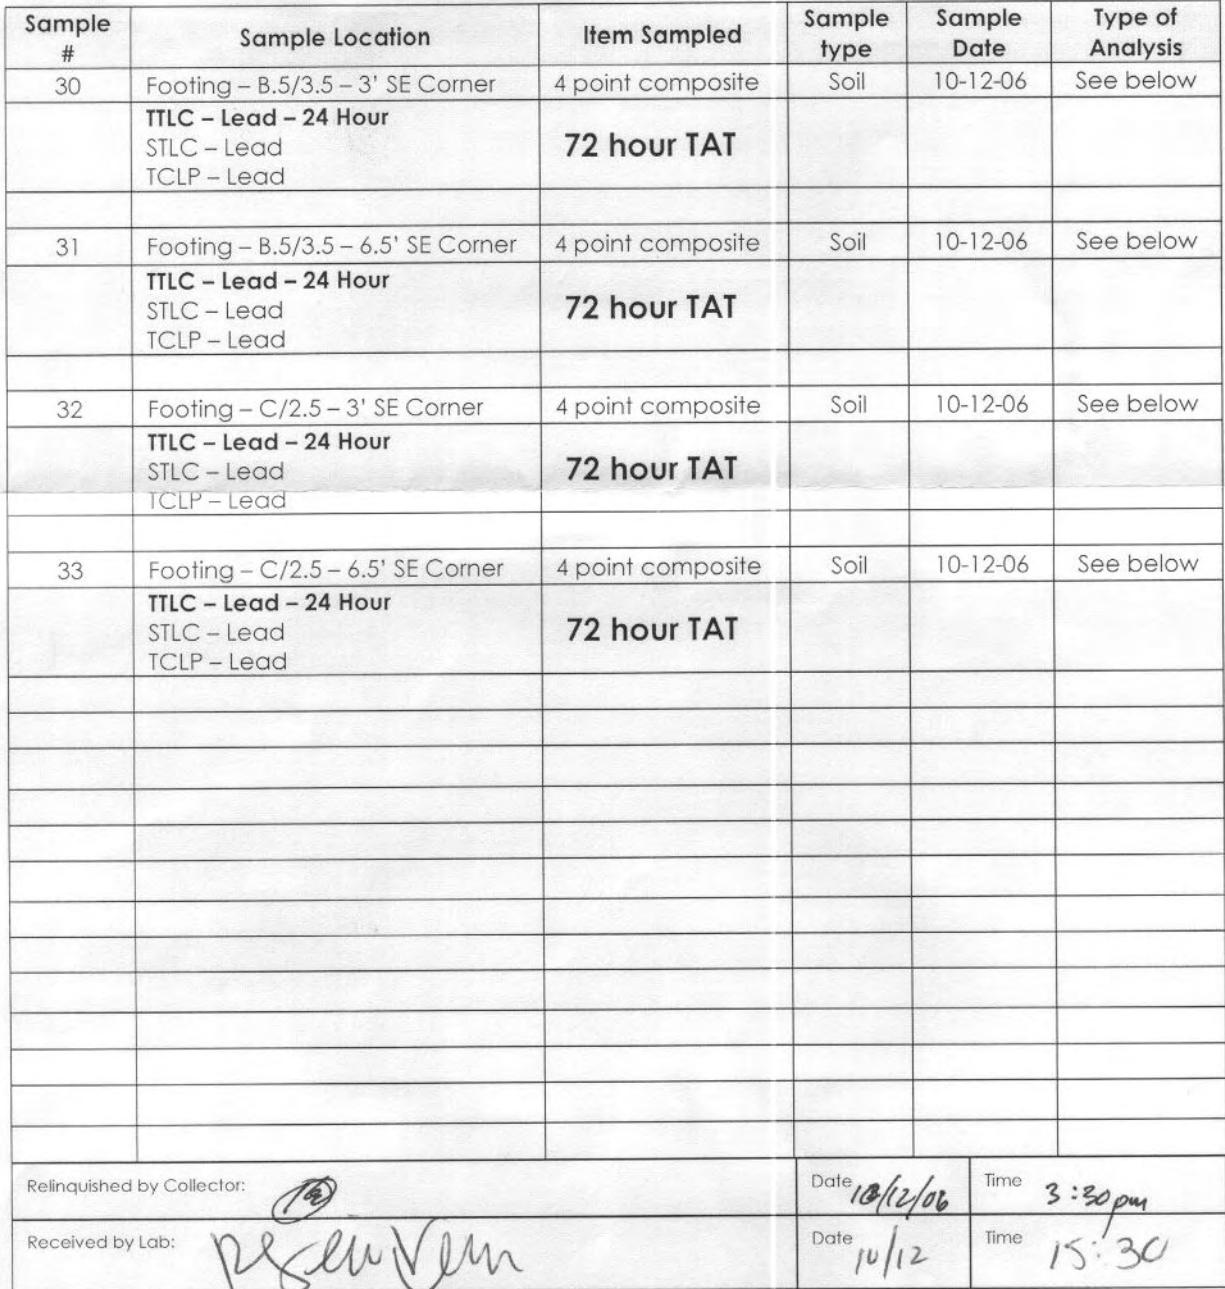 Sample # Sample Location Item Sampled Sample type Sample Date Type of Analysis
30 Footing – B.5/3.5 – 3' SE Corner 4 point composite Soil 10-12-06 See below
TTLC – Lead – 24 Hour
STLC – Lead 72 hour TAT
TCLP – Lead
31 Footing – B.5/3.5 – 6.5' SE Corner 4 point composite Soil 10-12-06 See below
TTLC – Lead – 24 Hour
STLC – Lead 72 hour TAT
TCLP – Lead
32 Footing – C/2.5 – 3' SE Corner 4 point composite Soil 10-12-06 See below
TTLC – Lead – 24 Hour
STLC – Lead 72 hour TAT
TCLP – Lead
33 Footing – C/2.5 – 6.5' SE Corner 4 point composite Soil 10-12-06 See below
TTLC – Lead – 24 Hour
STLC – Lead 72 hour TAT
TCLP – Lead
Relinquished by Collector: Date 10/12/06 Time 3:30 pm
Received by Lab: Date 10/12 Time 15:30